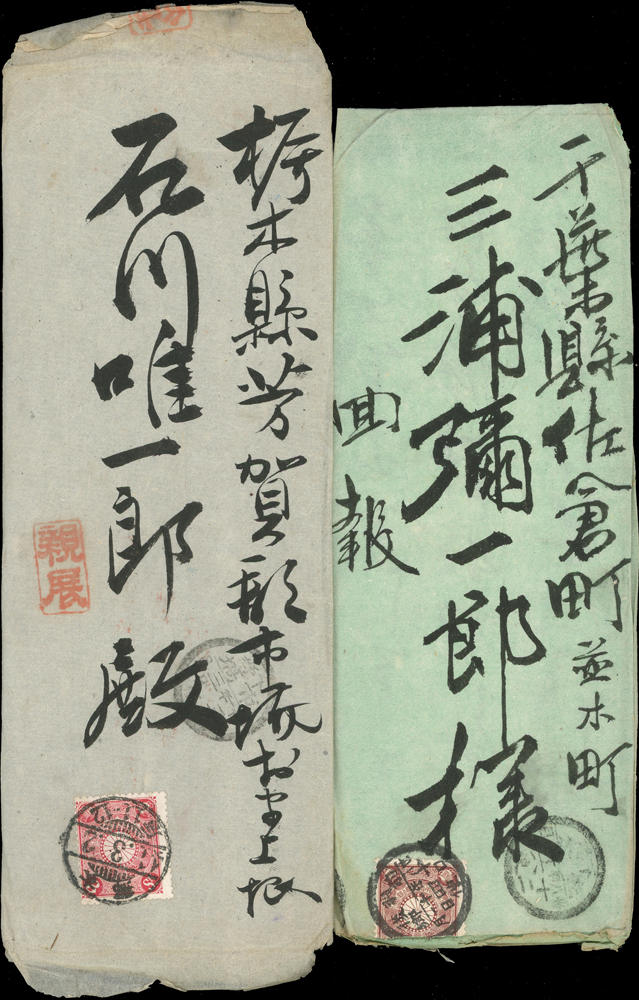 千葉縣佐倉町並木町
三浦彌一郎様
回報
栃木縣芳賀郡市塙村上根
石川唯一郎殿
親展